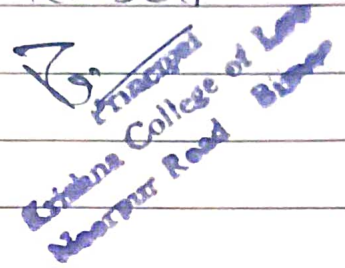 Principal
Krishna College of Law
Noorpur Road